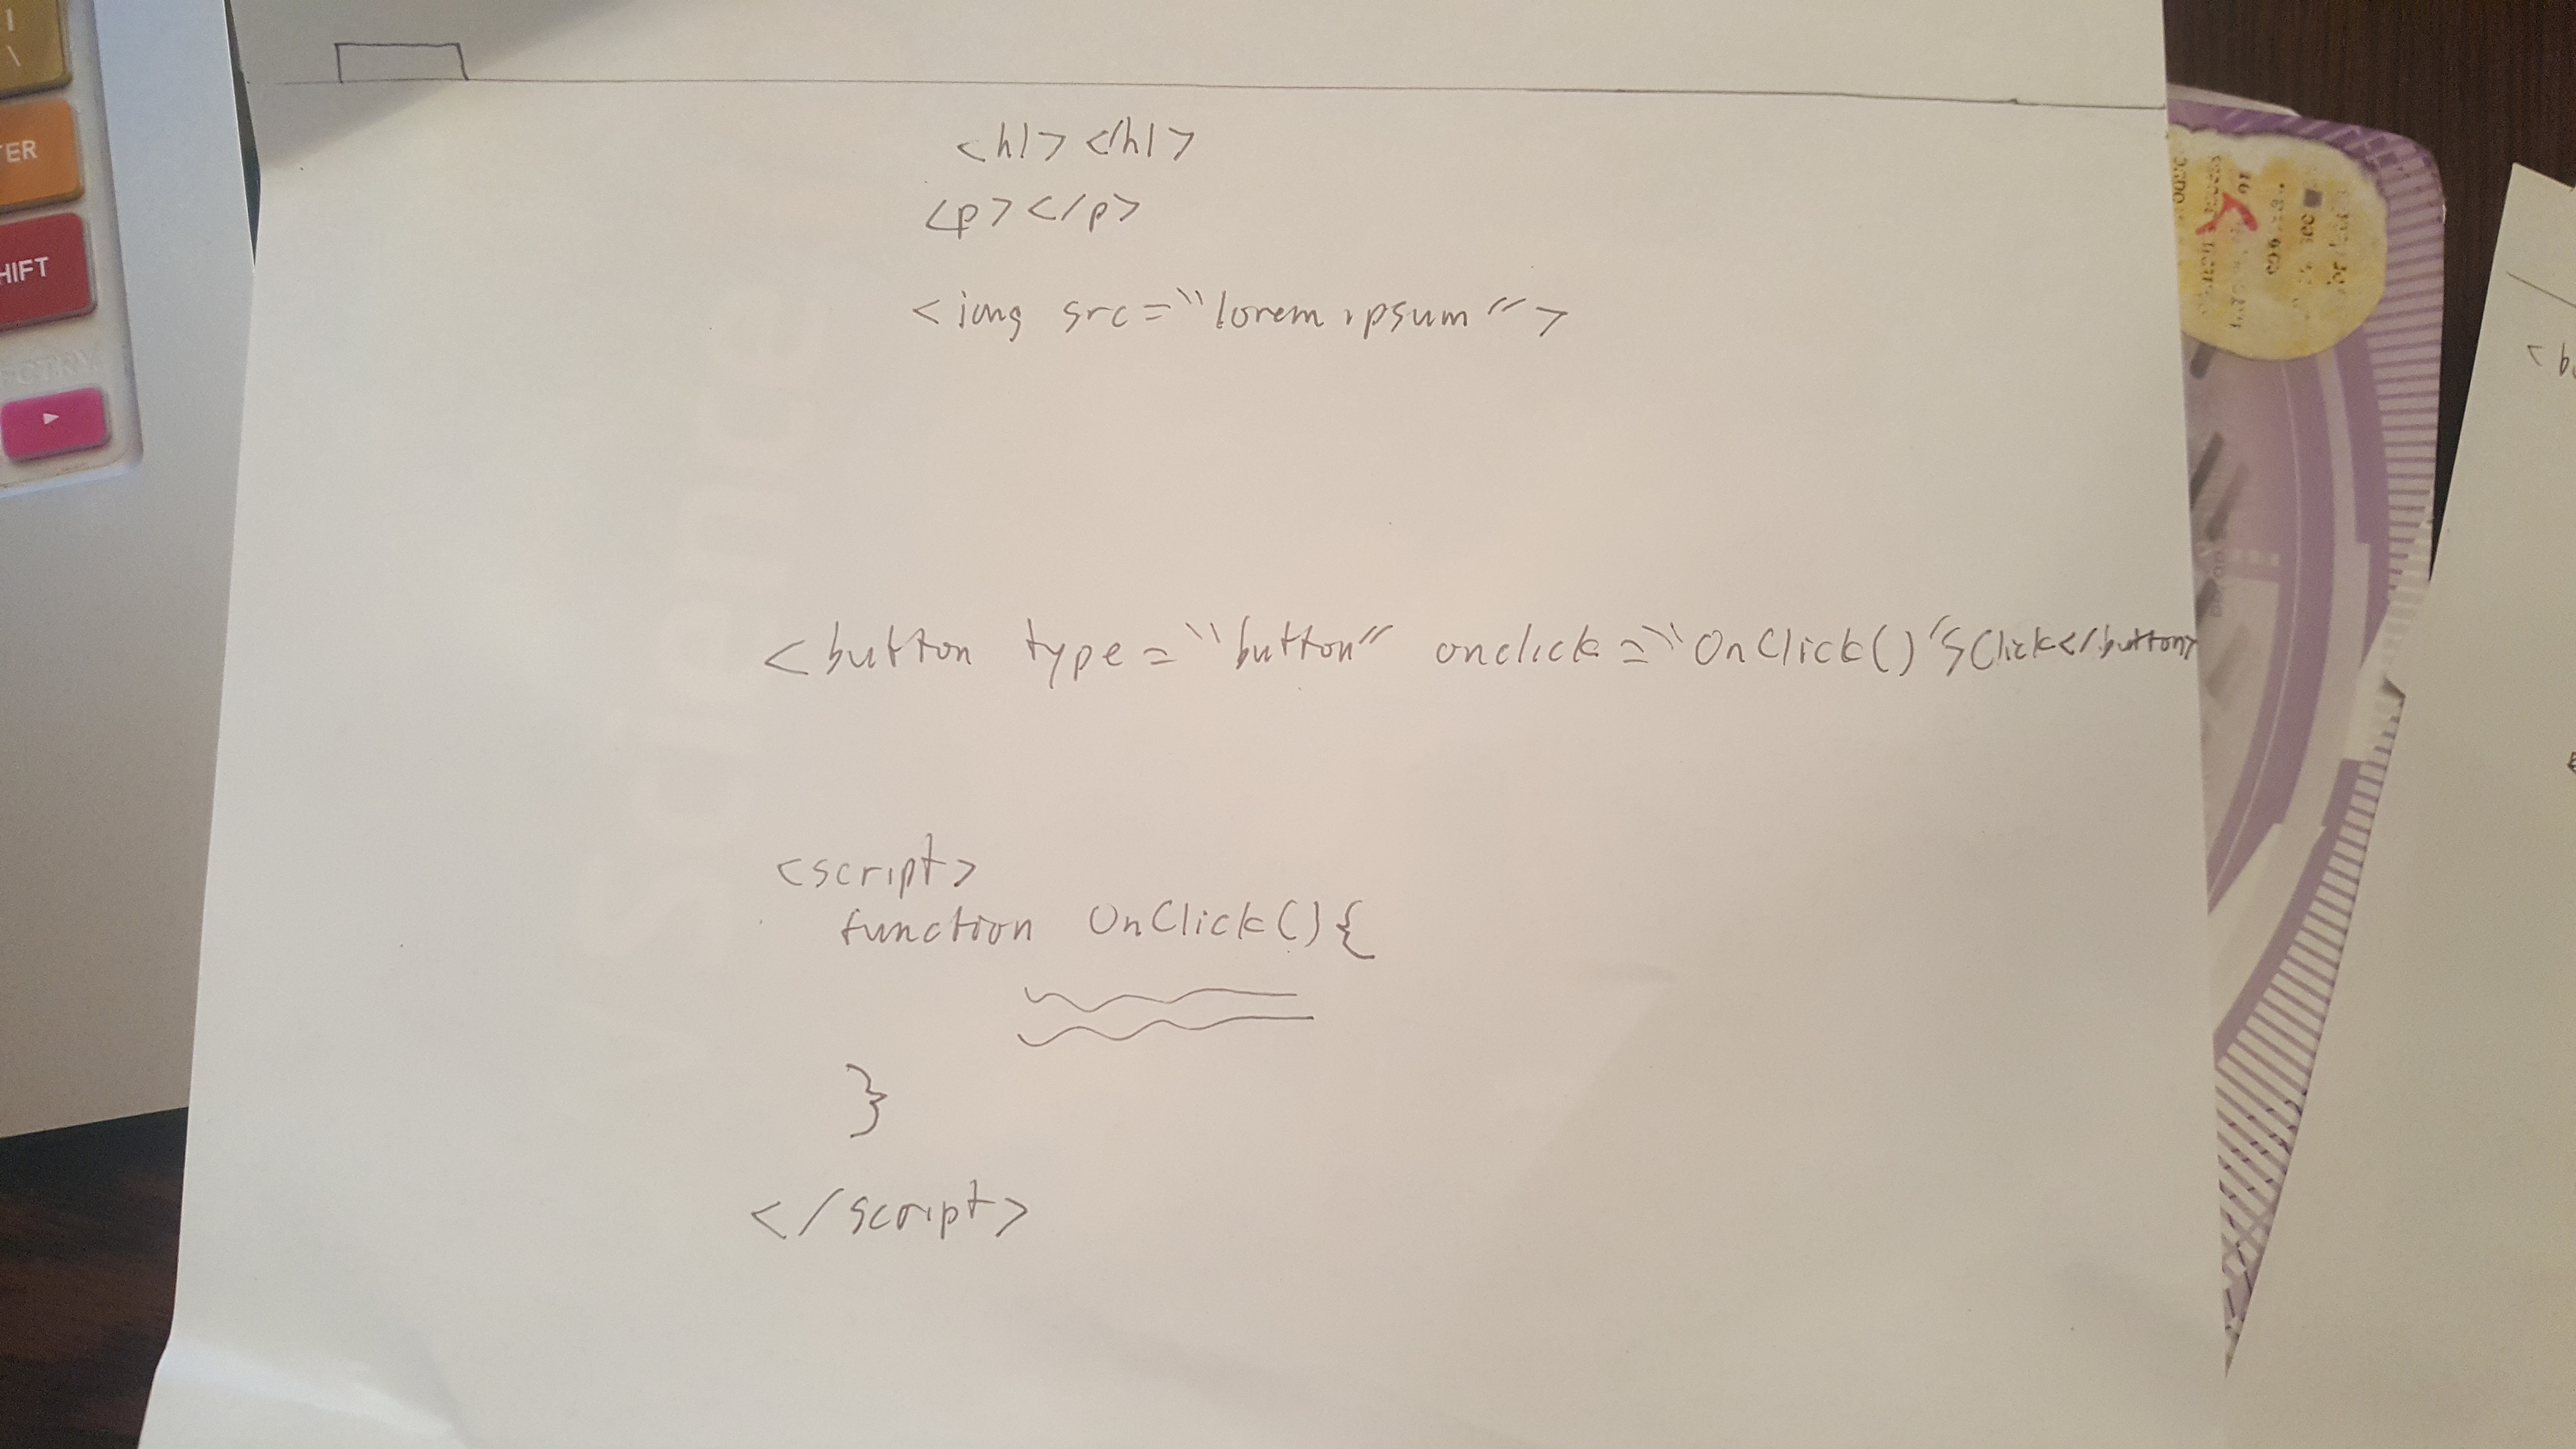 ER
HIFT
<h1></h1>
<p></p>
<img src="lorem ipsum">
<button type="button" onclick="OnClick()">Click</button>
<script>
function OnClick(){
}
</script>